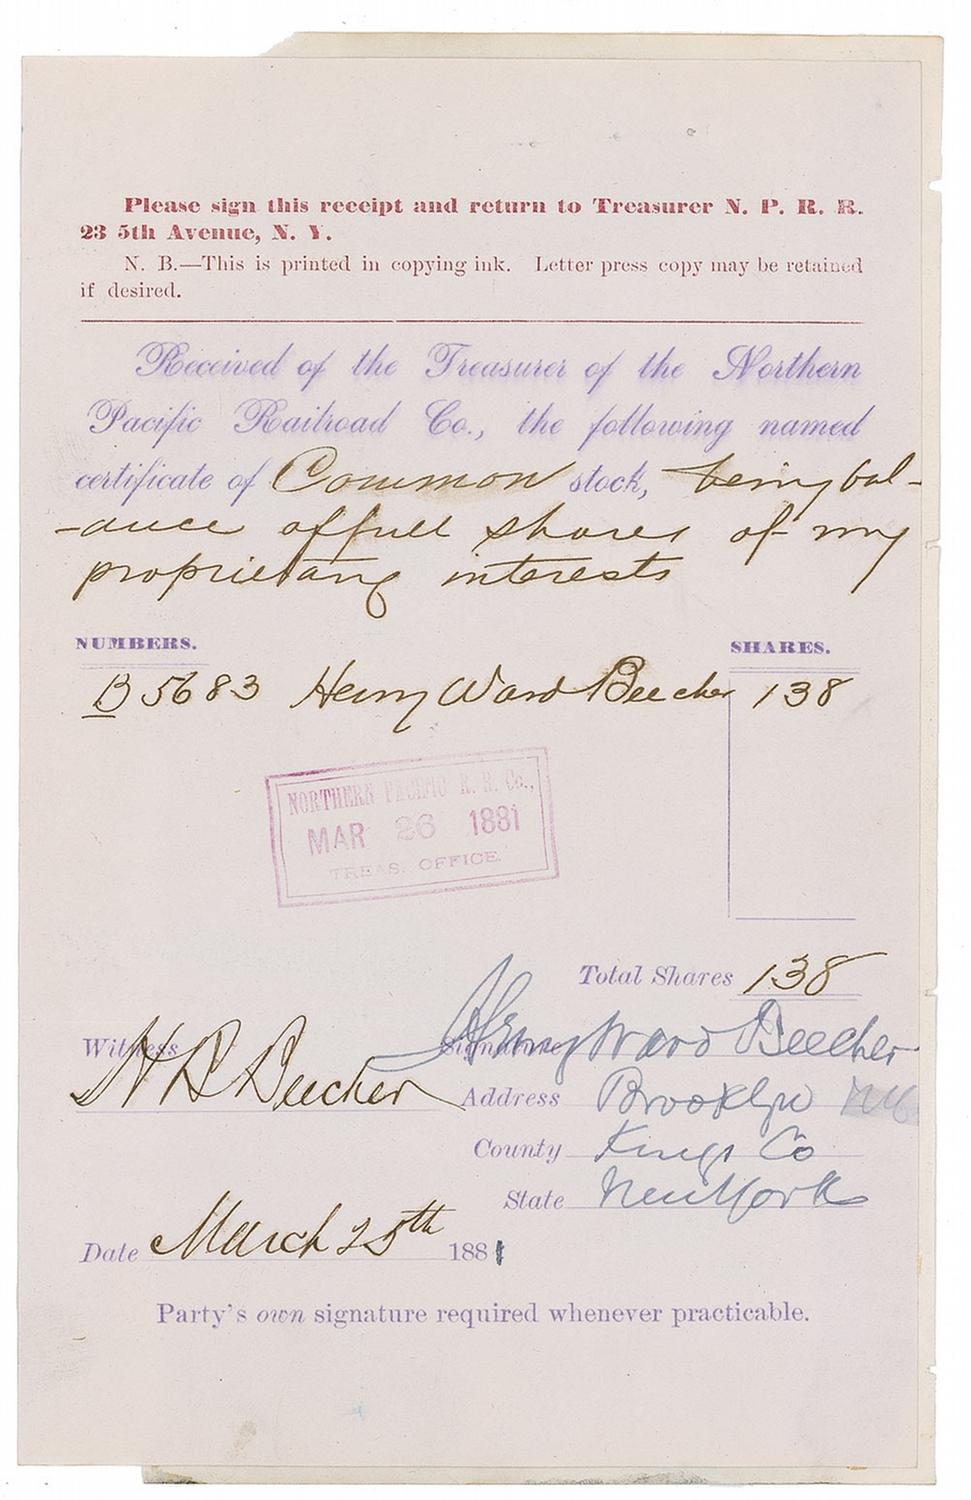 Please sign this receipt and return to Treasurer N. P. R. R.
23 5th Avenue, N. Y.
N. B.—This is printed in copying ink. Letter press copy may be retained
if desired.
Received of the Treasurer of the Northern
Pacific Railroad Co., the following named
certificate of Common stock, being bal-
-ance of full shares of my
proprietary interests
NUMBERS. SHARES.
B 5683 Henry Ward Beecher 138
NORTHERN PACIFIC R. R. Co.,
MAR 26 1881
TREAS. OFFICE.
Total Shares 138
Witness H B Beecher Signature Henry Ward Beecher
Address Brooklyn
County Kings Co
State New York
Date March 25th 1881
Party's own signature required whenever practicable.